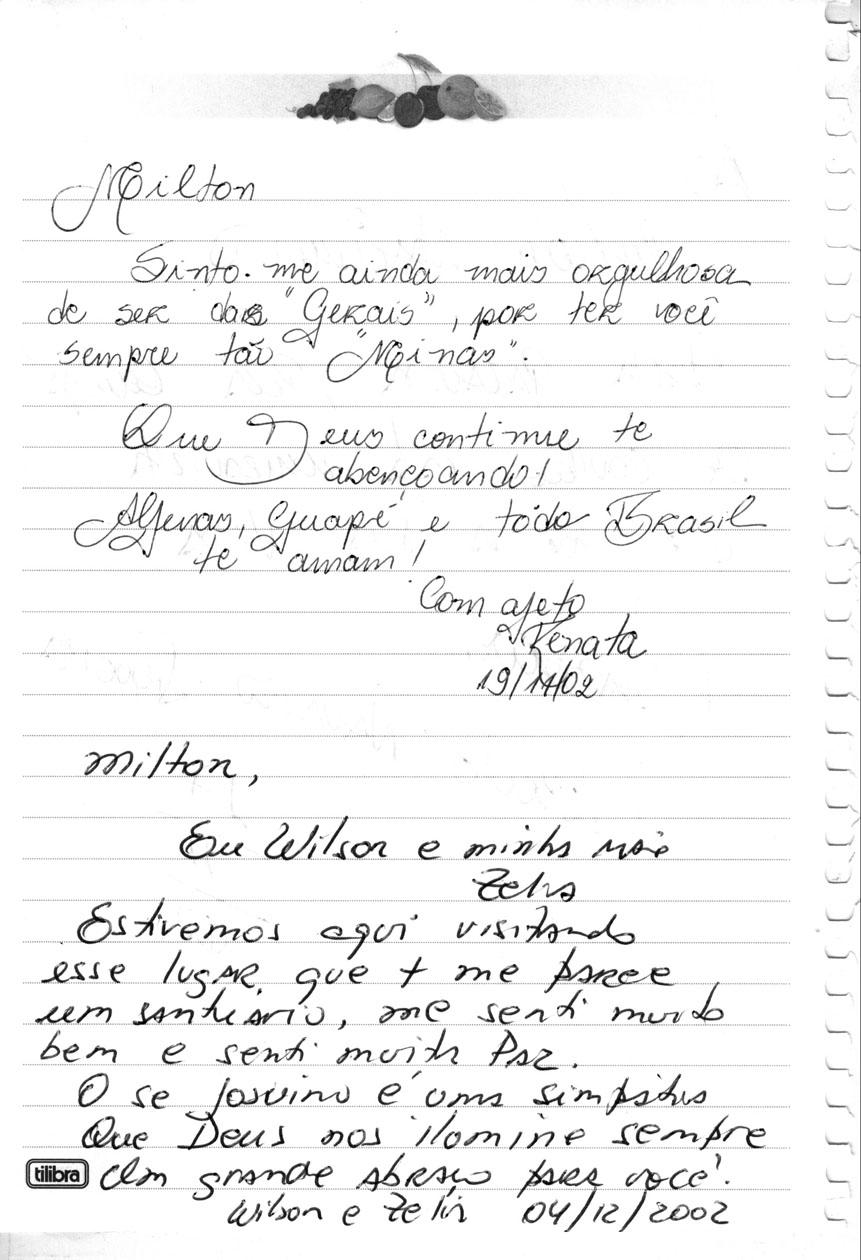 Milton
Sinto-me ainda mais orgulhosa
de ser das "Gerais", por ter você
sempre tão "Minas".
Que Deus continue te
abençoando!
Alfenas, Guapé e todo Brasil
te amam!
Com afeto
Renata
19/11/02
Milton,
Eu Wilson e minha mãe
Zelia
Estivemos aqui visitando
esse lugar, que + me parece
um santuario, me senti muito
bem e senti muita Paz.
O se Josuino é uma simpatia
Que Deus nos ilomine sempre
Um grande abraço para você!
Wilson e Zelia 04/12/2002
tilibra